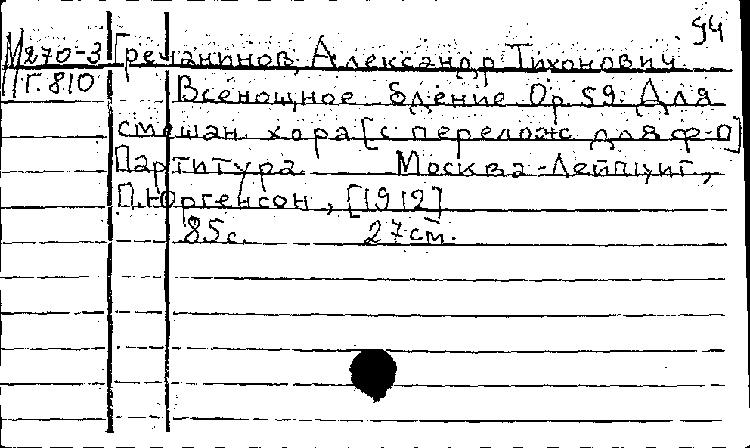 94
М270-3 Гречанинов, Александр Тихонович.
Г.810 Всенощное бдение Op. 59. Для
смешан. хора [с перелож. для ф-п]
Партитура. Москва-Лейпциг,
П.Юргенсон, [1912]
85с. 27см.